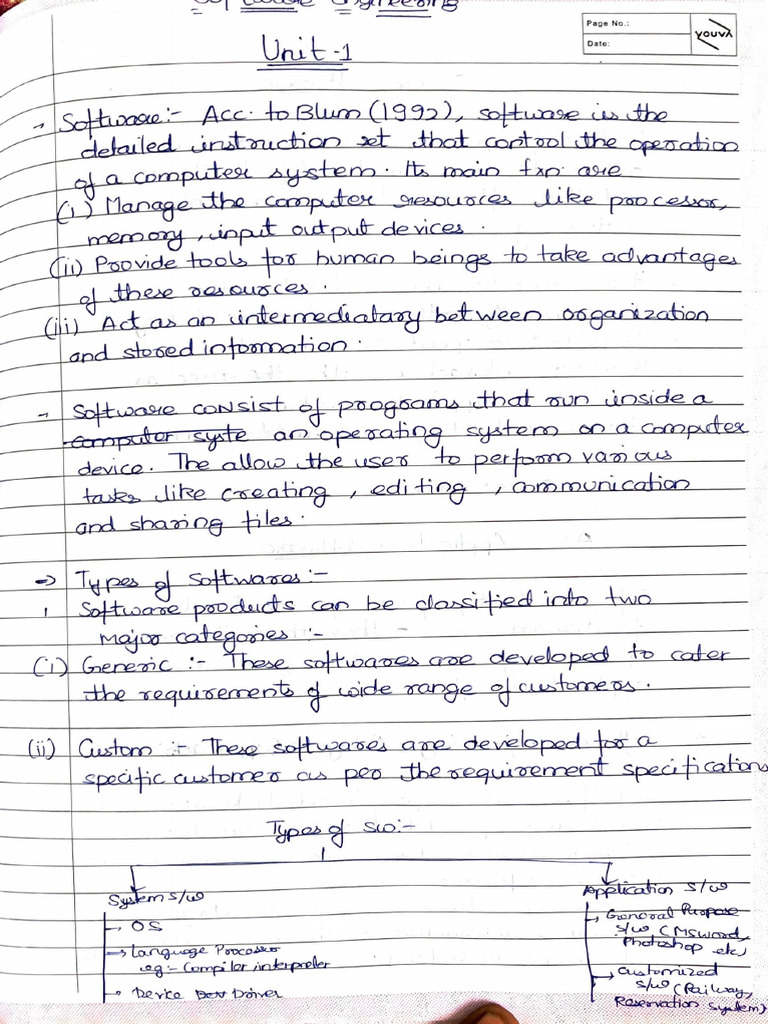 Software Engineering
Page No.:
Date:
youva
Unit-1
→ Software:- Acc. to Blum (1992), software is the
detailed instruction set that control the operation
of a computer system. Its main fxn are
(i) Manage the computer resources like processor,
memory, input output devices.
(ii) Provide tools for human beings to take advantages
of these resources.
(iii) Act as an intermediatary between organization
and stored information.
→ Software consist of programs that run inside a
computer syste an operating system on a computer
device. The allow the user to perform various
tasks like creating, editing, communication
and sharing files.
⇒ Types of Softwares:-
1 Software products can be classified into two
major categories:-
(i) Generic :- These softwares are developed to cater
the requirements of wide range of customers.
(ii) Custom :- These softwares are developed for a
specific customer as per the requirement specifications
Types of sw:-
System s/w
→ OS
→ Language Processor
eg:- Compiler interpreter
→ Device Driver
Application s/w
→ General Purpose
s/w (MSword,
Photoshop etc)
→ Customized
s/w (Railway,
Reservation System)